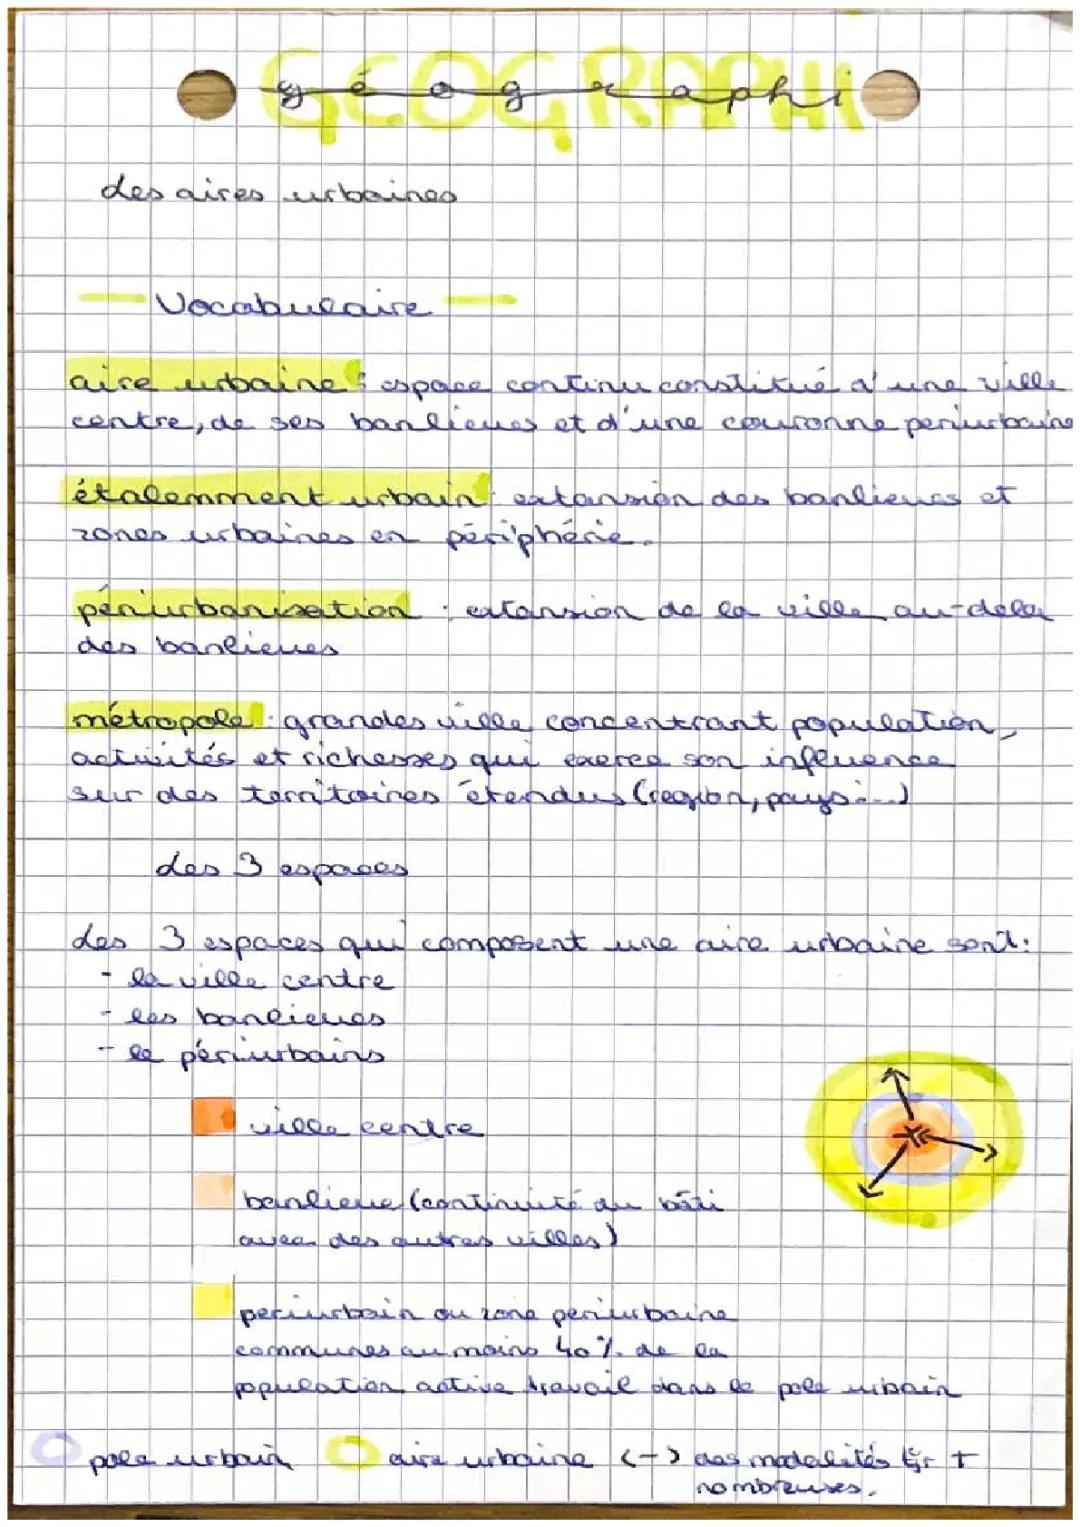 GEOGRAPHI
géographi
Les aires urbaines
Vocabulaire
aire urbaine : espace continu constitué d'une ville
centre, de ses banlieues et d'une couronne periurbaine
étalemment urbain : extansion des banlieues et
zones urbaines en périphérie.
périurbanisation : extansion de la ville au-dela
des banlieues
métropole : grandes ville concentrant population,
activités et richesses qui exerce son influence
sur des territoires étendus (region, pays...)
Les 3 espaces
Les 3 espaces qui composent une aire urbaine sont:
- la ville centre
- les banlieues
- le périurbains
ville centre
banlieue (continuité du bâti
avec des autres villes)
periurbain ou zone periurbaine
communes au moins 40% de la
population active travail dans le pole urbain
pole urbain
aire urbaine <-> des modalités tjr +
nombreuses.